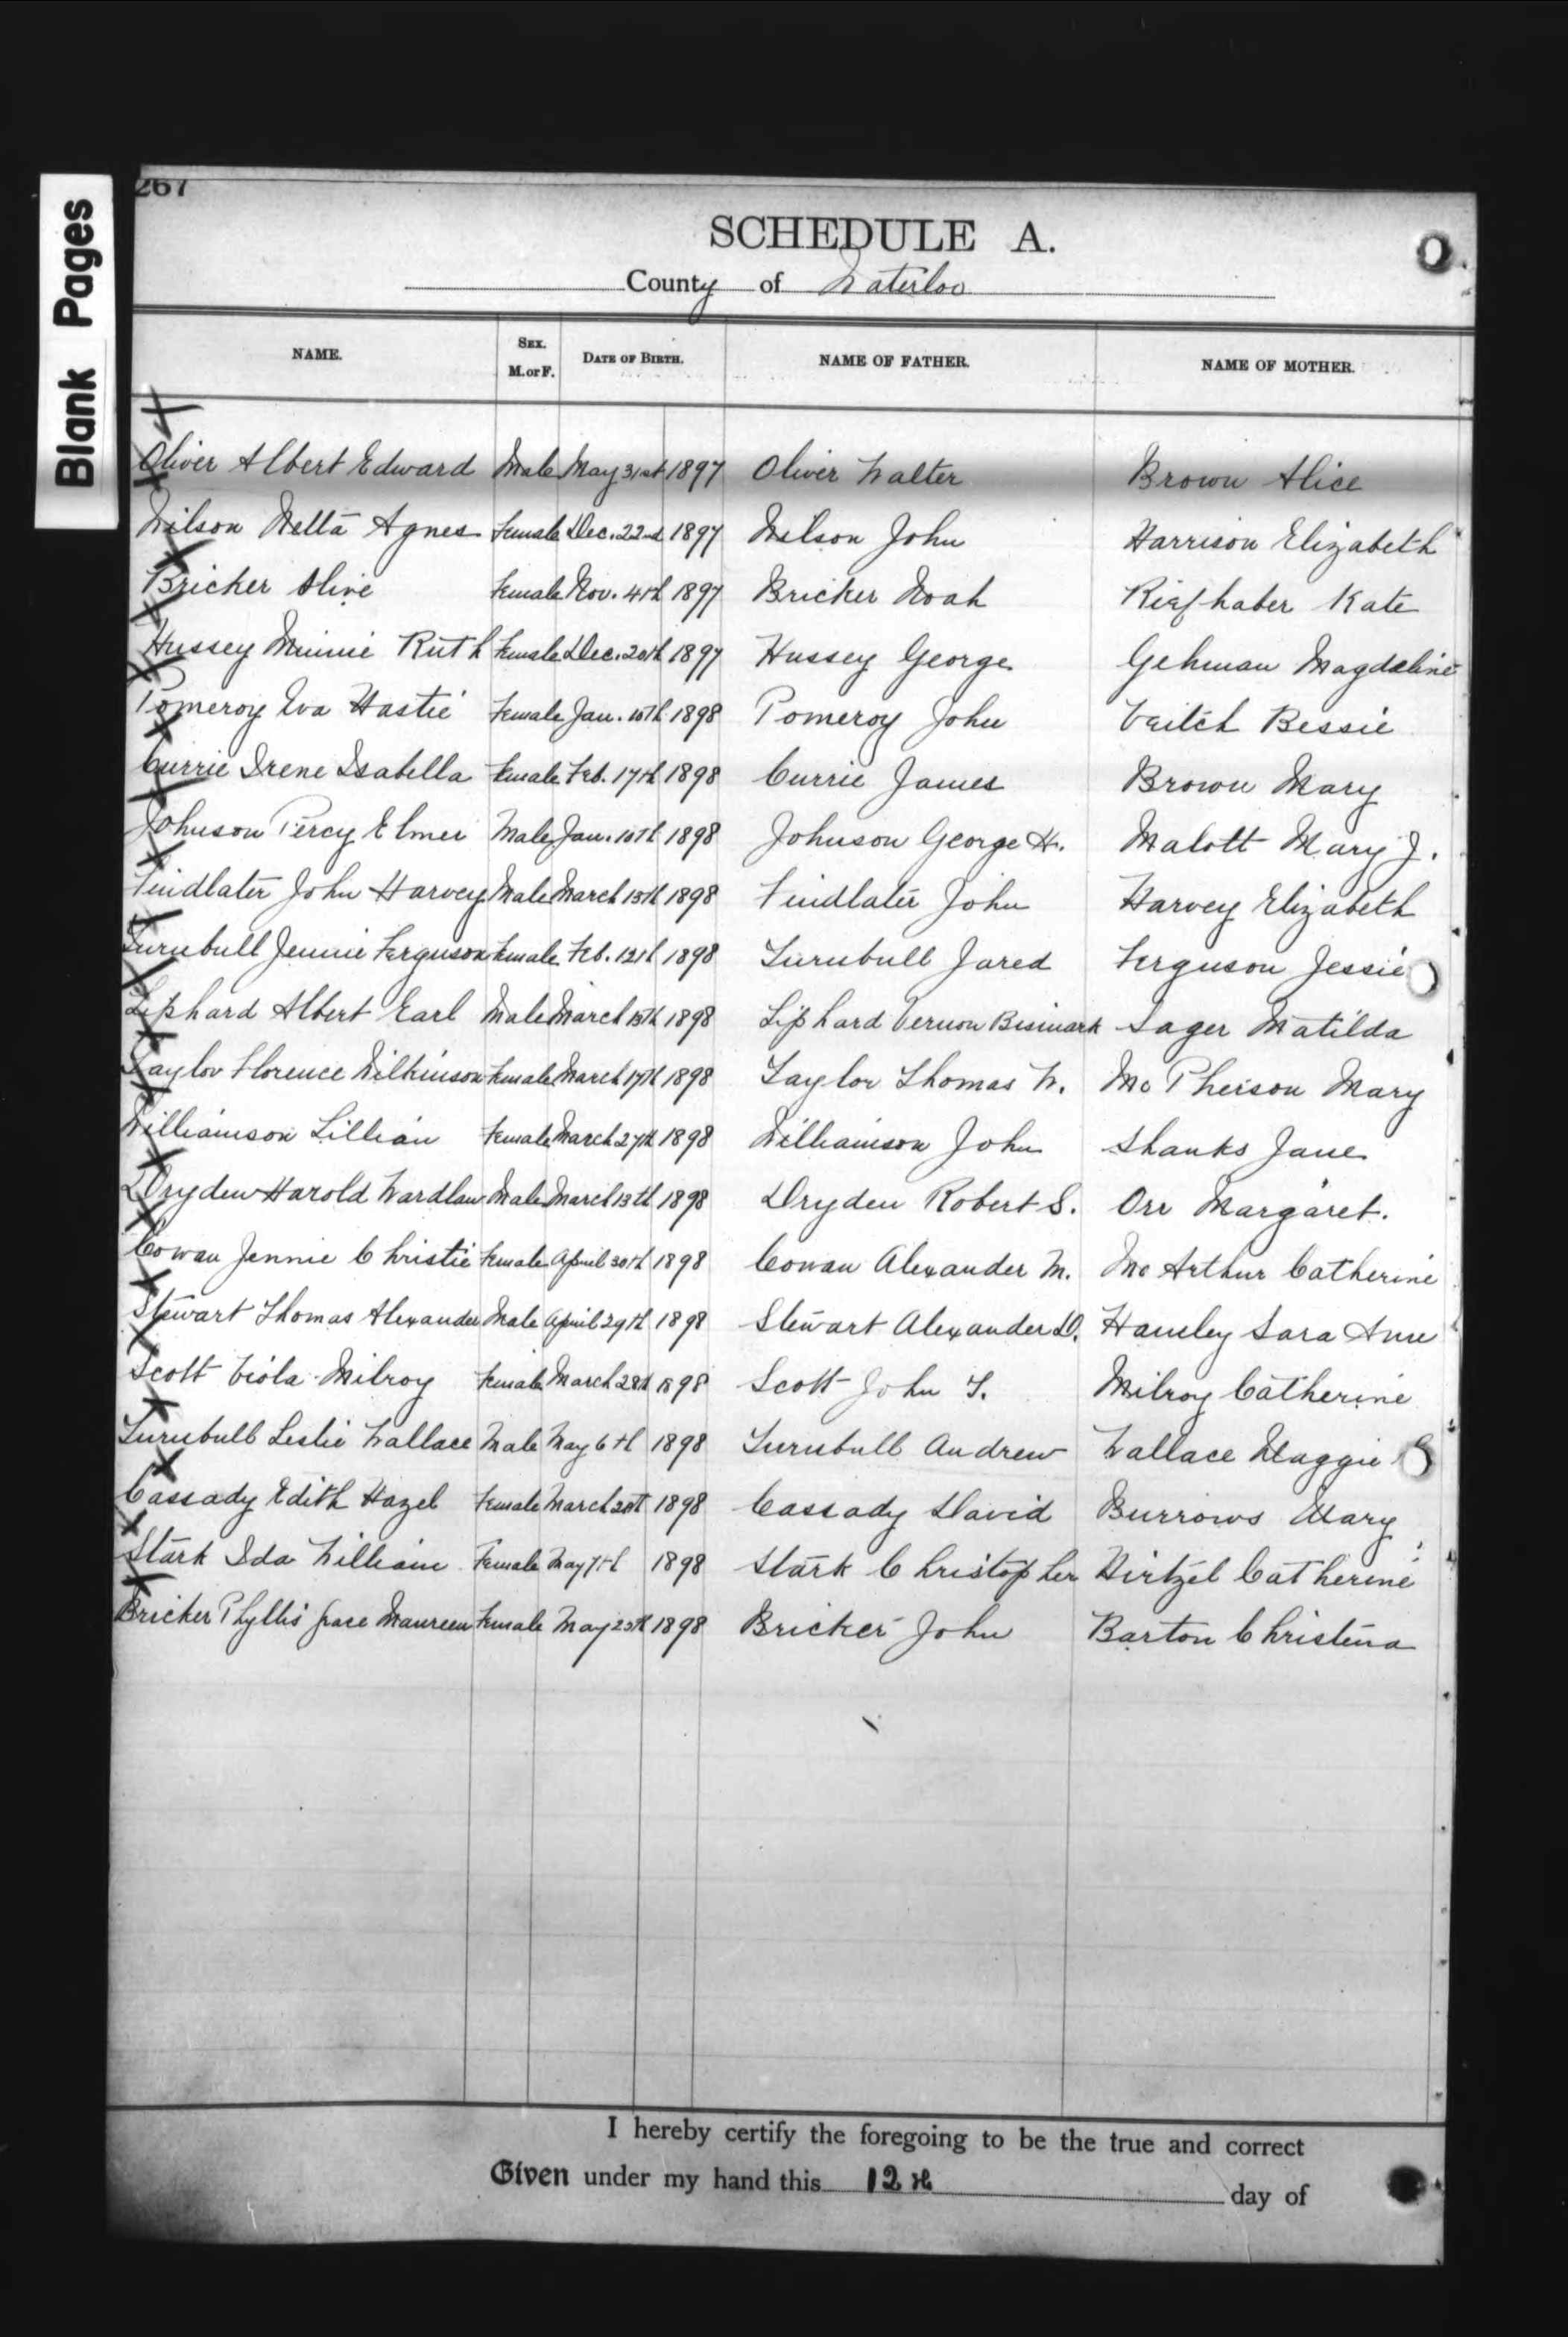 267
Blank Pages
SCHEDULE A.
County of Waterloo
NAME. SEX. M. or F. DATE OF BIRTH. NAME OF FATHER. NAME OF MOTHER.
Oliver Albert Edward Male May 31st 1897 Oliver Walter Brown Alice
Wilson Netta Agnes Female Dec. 22nd 1897 Wilson John Harrison Elizabeth
Bricker Olive Female Nov. 4th 1897 Bricker Noah Riefhaber Kate
Hussey Minnie Ruth Female Dec. 20th 1897 Hussey George Gehman Magdaline
Pomeroy Eva Hastie Female Jan. 10th 1898 Pomeroy John Veitch Bessie
Currie Irene Isabella Female Feb. 17th 1898 Currie James Brown Mary
Johnson Percy Elmer Male Jan. 10th 1898 Johnson George H. Malott Mary J.
Findlater John Harvey Male March 15th 1898 Findlater John Harvey Elizabeth
Turnbull Jennie Ferguson Female Feb. 12th 1898 Turnbull Jared Ferguson Jessie
Liphard Albert Earl Male March 15th 1898 Liphard Vernon Bismark Sager Matilda
Taylor Florence Wilkinson Female March 17th 1898 Taylor Thomas W. McPherson Mary
Williamson Lillian Female March 27th 1898 Williamson John Shanks Jane
Dryden Harold Wardlaw Male March 13th 1898 Dryden Robert S. Orr Margaret.
Cowan Jennie Christie Female April 30th 1898 Cowan Alexander M. McArthur Catherine
Stewart Thomas Alexander Male April 29th 1898 Stewart Alexander D. Hamley Sara Ann
Scott Viola Milroy Female March 28th 1898 Scott John T. Milroy Catherine
Turnbull Leslie Wallace Male May 6th 1898 Turnbull Andrew Wallace Maggie
Cassady Edith Hazel Female March 1898 Cassady David Burrows Mary
Stark Ida William Female May 7th 1898 Stark Christopher Hirtzel Catherine
Bricker Phyllis Maureen Female May 1898 Bricker John Barton Christena
I hereby certify the foregoing to be the true and correct
Given under my hand this 12th day of